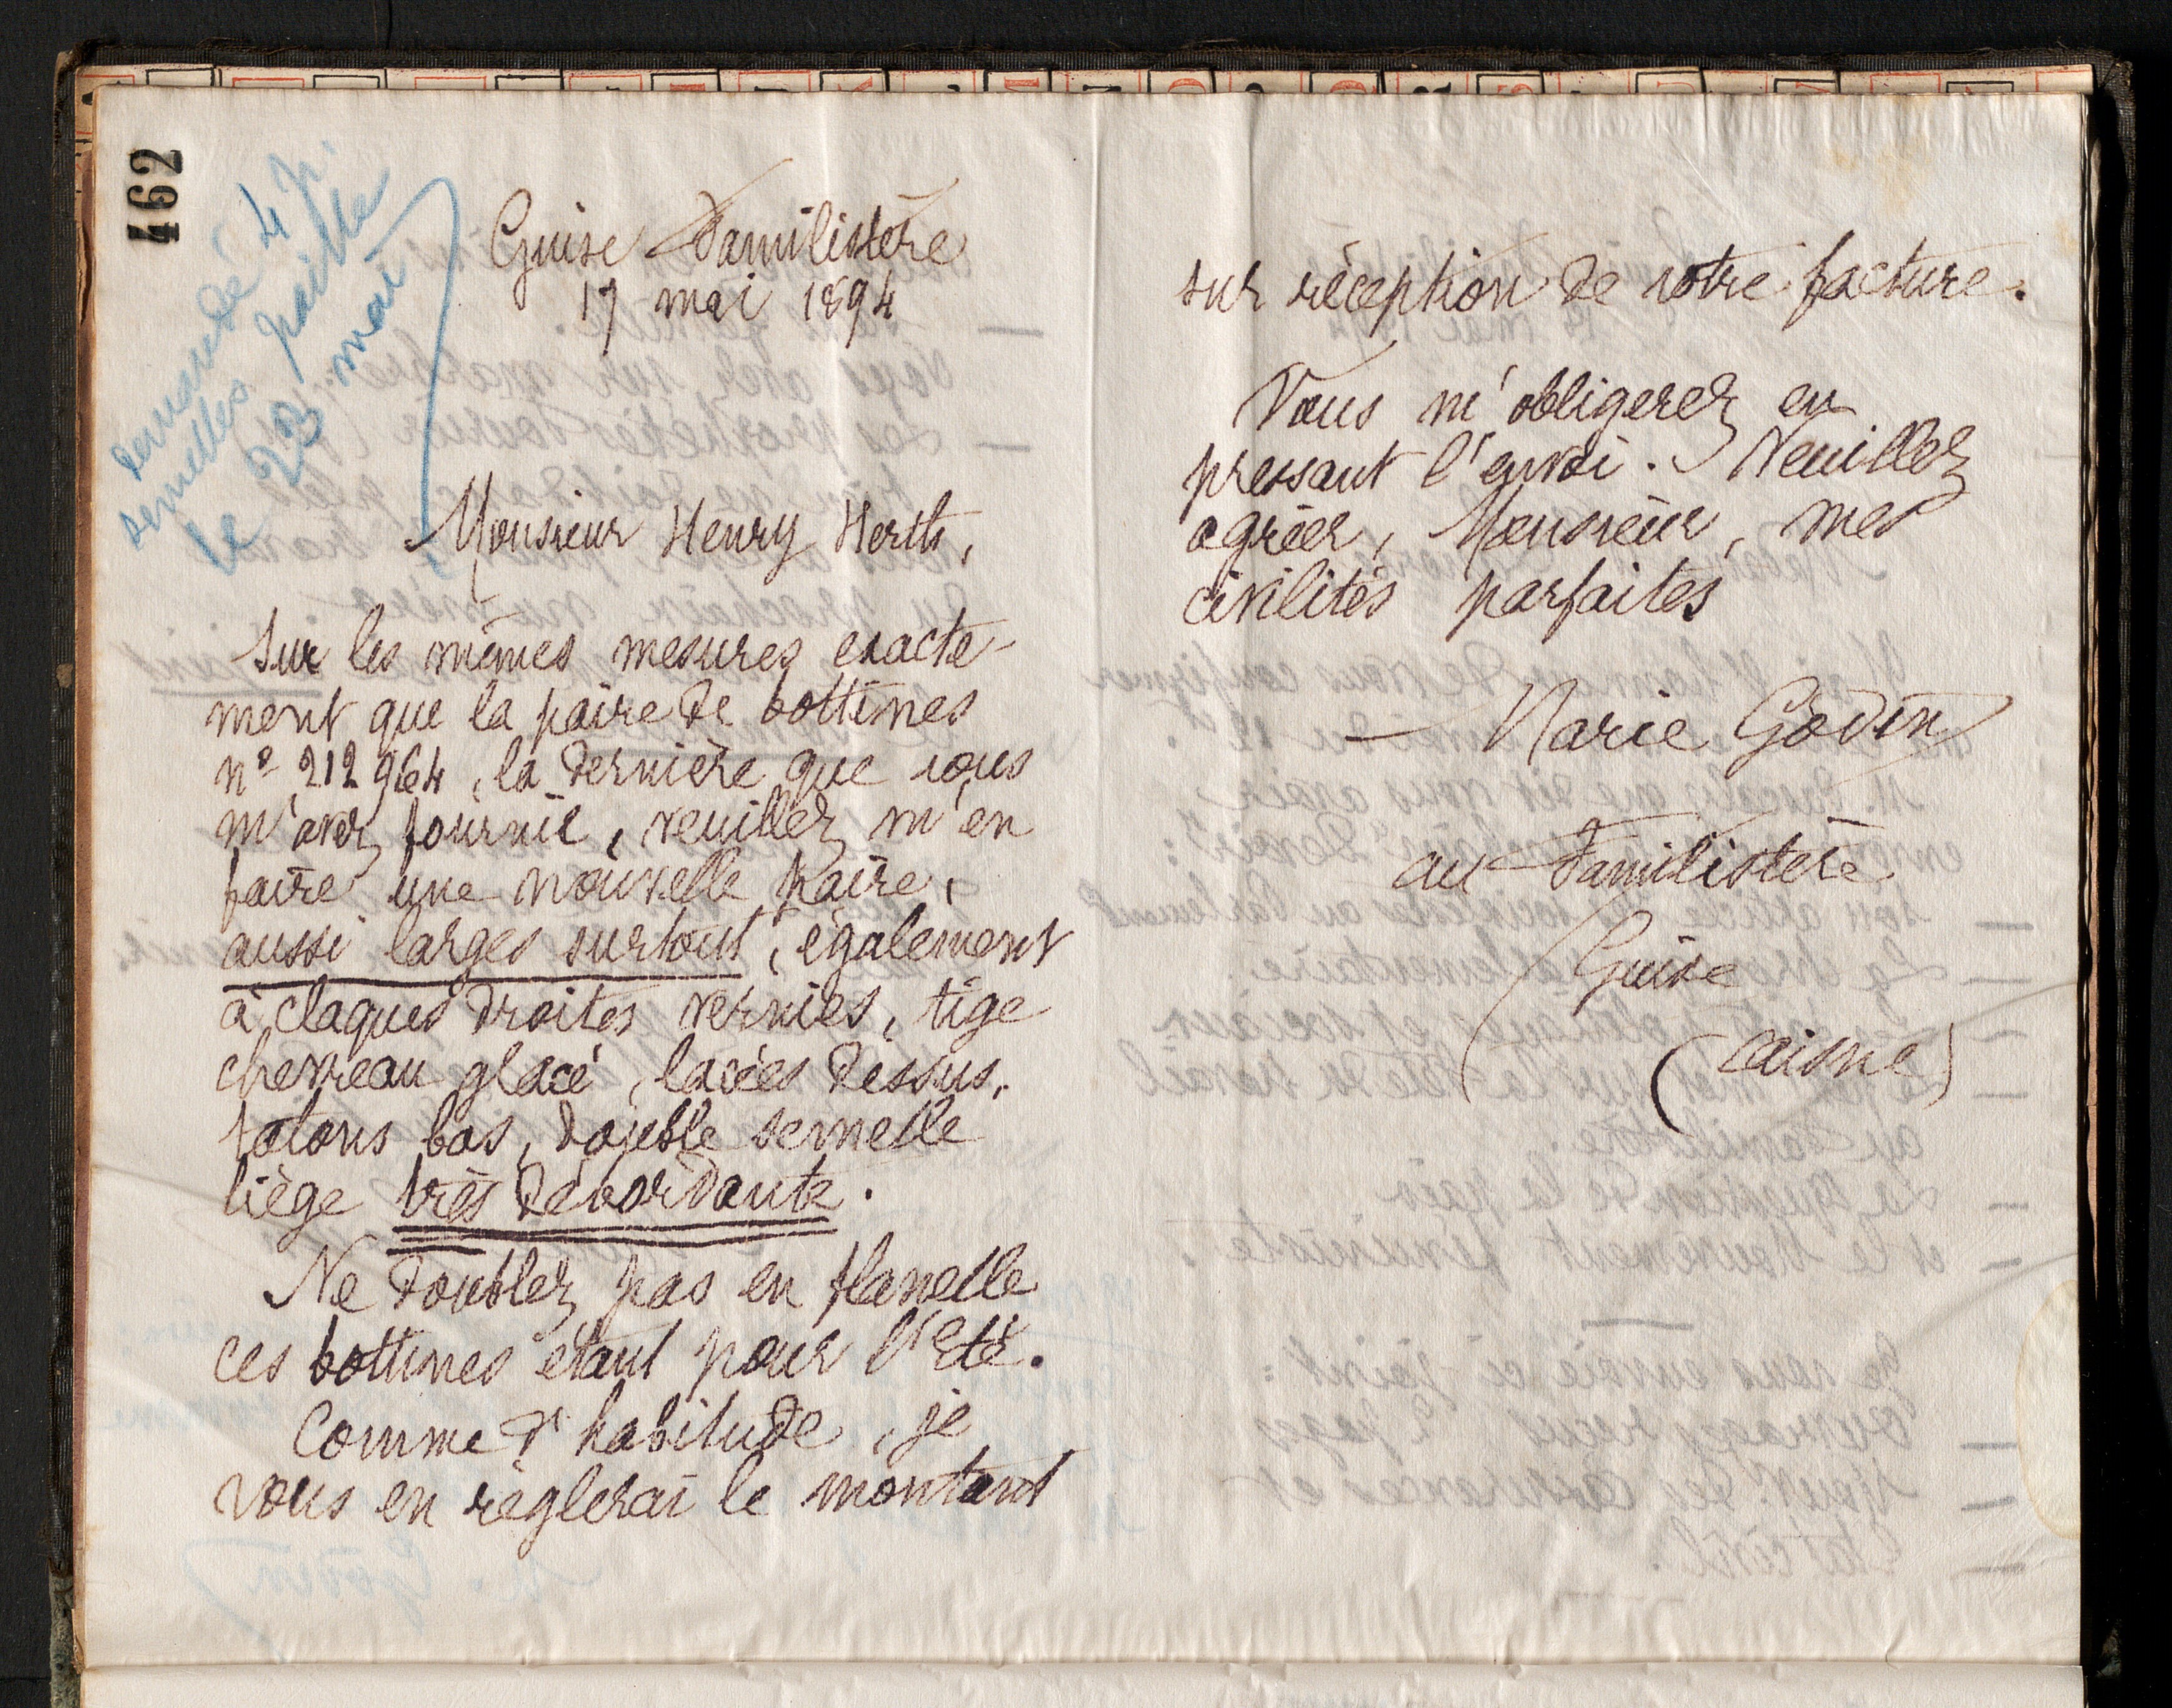 462
demandé 4 p.
semelles paille
le 23 mai
Guise Familistère
17 mai 1894
Monsieur Henry Herth,
Sur les mêmes mesures exacte-
ment que la paire de bottines
nº 212 964, la dernière que vous
m'avez fournie, veuillez m'en
faire une nouvelle paire,
aussi larges surtout, également
à claques droites vernies, tige
chevreau glacé, lacées dessus,
talons bas, double semelle
liège très débordante.
Ne doublez pas en flanelle
ces bottines étant pour l'Eté.
Comme d'habitude, je
vous en règlerai le montant
sur réception de votre facture.
Vous m'obligerez en
pressant l'envoi. Veuillez
agréer, Monsieur, mes
civilités parfaites
Marie Godin
au Familistère
Guise
(Aisne)